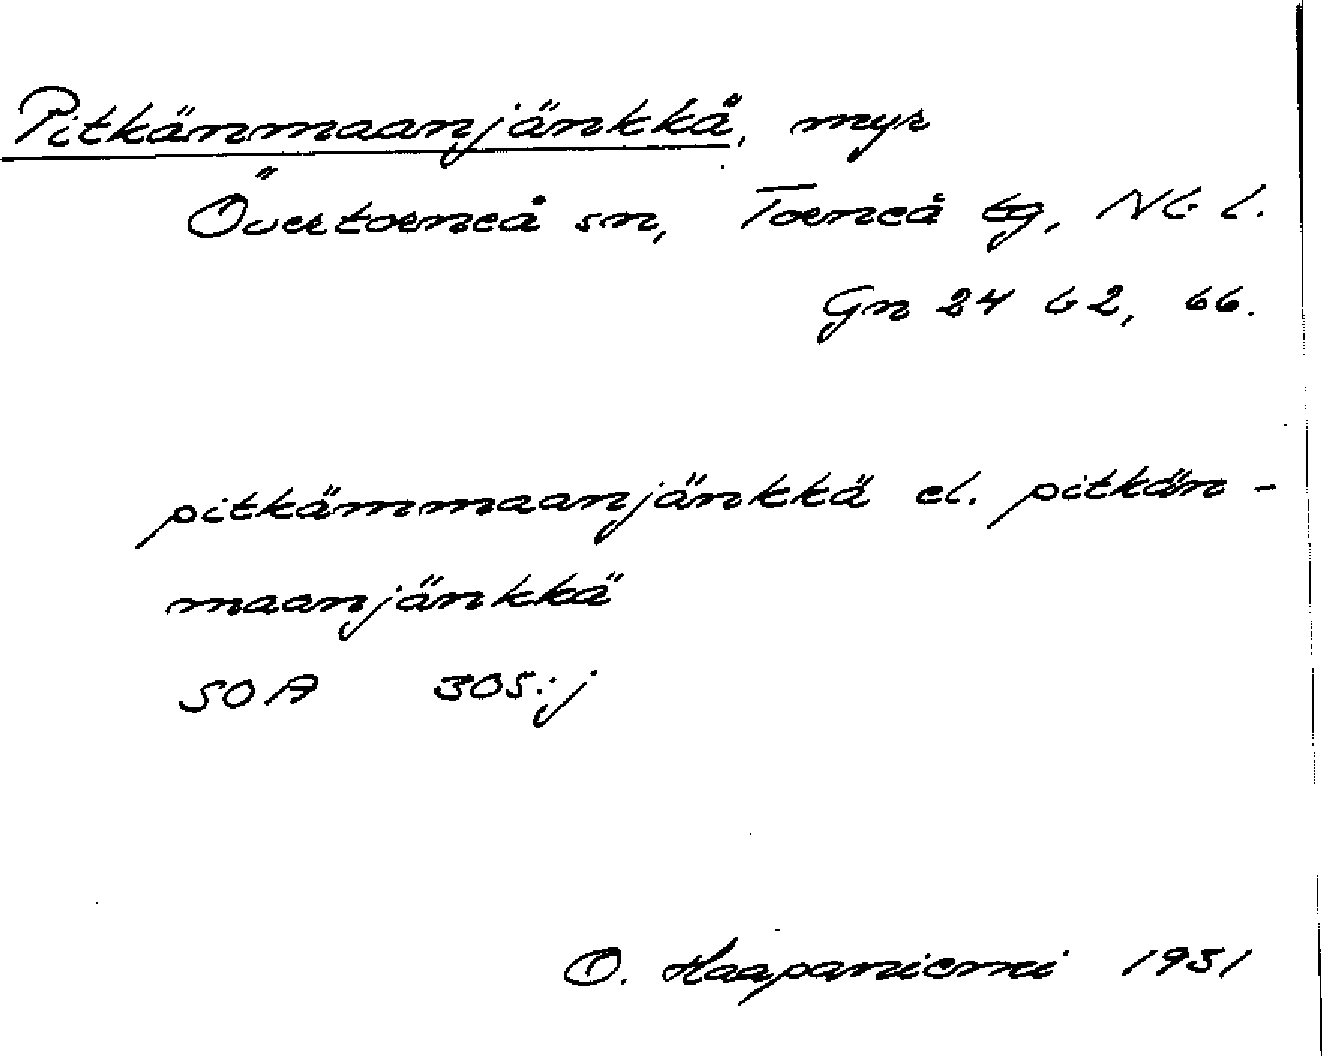 Pitkänmaanjänkkä, myr
Övertorneå sn, Torneå tg, Nb l.
Gn 24 b2, b6.
pitkämmaanjänkkä el. pitkän-
maanjänkkä
SOA 305:j
O. Haapaniemi 1931